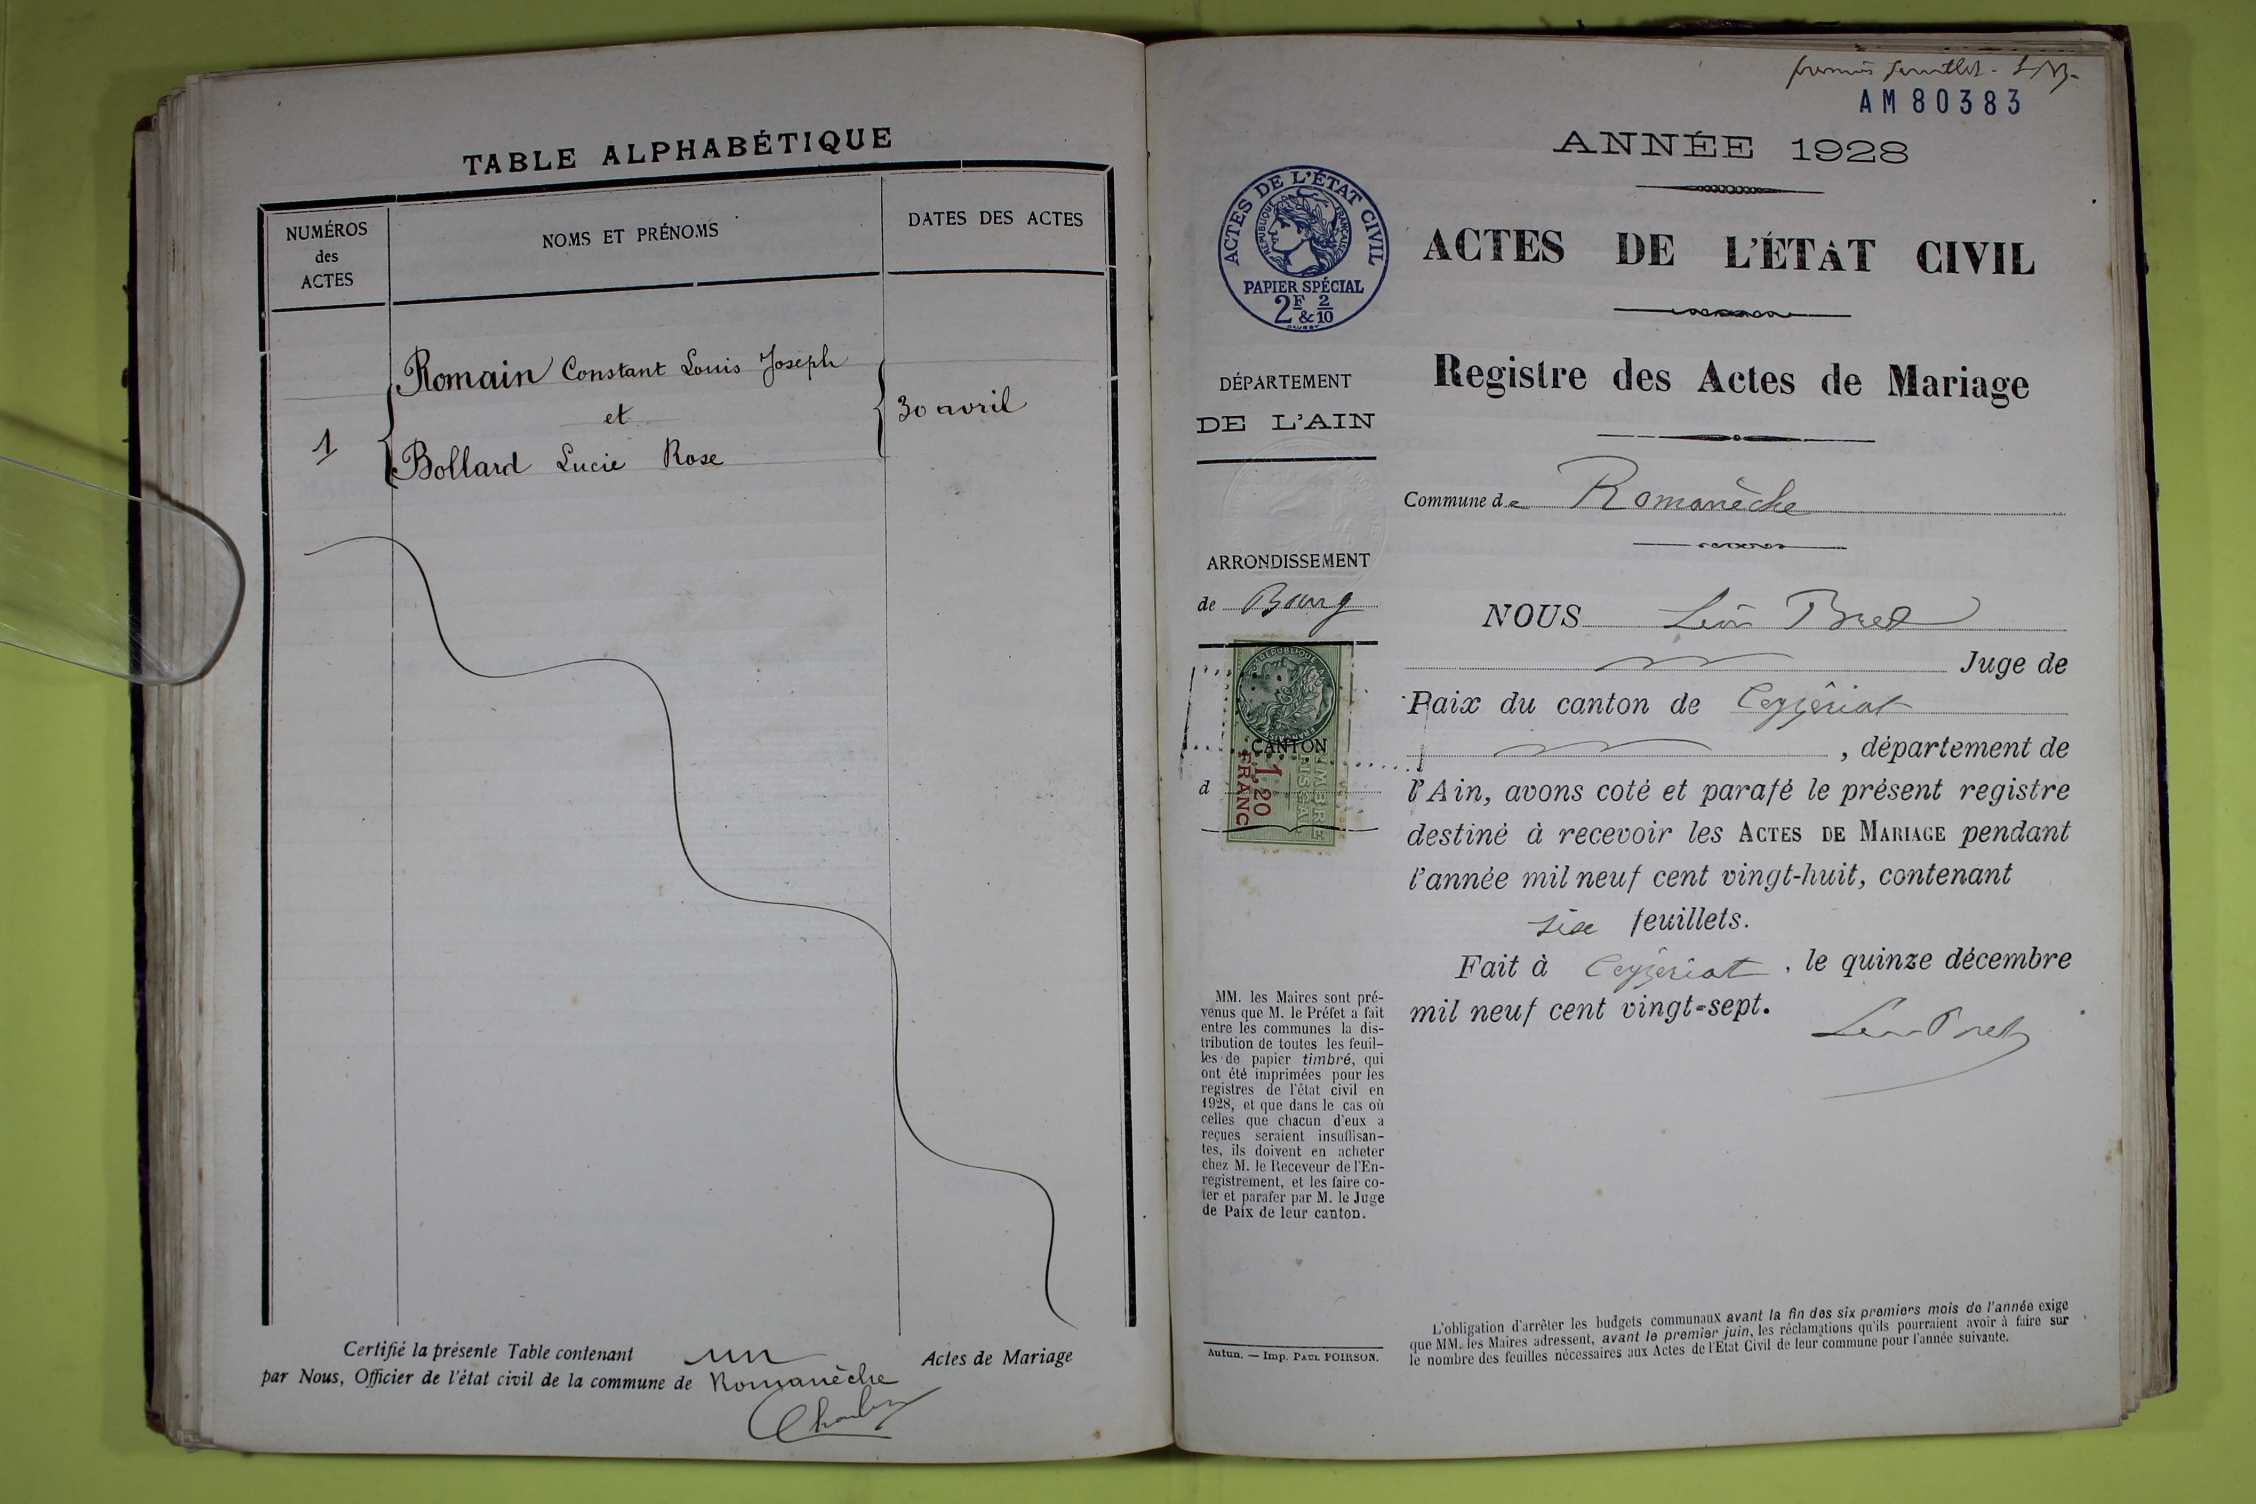 TABLE ALPHABÉTIQUE
NUMÉROS
des
ACTES
NOMS ET PRÉNOMS
DATES DES ACTES
Romain Constant Louis Joseph
et
1
30 avril
Bollard Lucie Rose
Certifié la présente Table contenant un Actes de Mariage
par Nous, Officier de l'état civil de la commune de Romanèche
premier feuillet.
AM80383
ANNÉE 1928
ACTES DE L'ÉTAT CIVIL
RÉPUBLIQUE FRANÇAISE
PAPIER SPÉCIAL
2F & 2/10
ACTES DE L'ÉTAT CIVIL
Registre des Actes de Mariage
DÉPARTEMENT
DE L'AIN
Commune de Romanèche
ARRONDISSEMENT
de Bourg
RÉPUBLIQUE FRANÇAISE
CANTON
TIMBRE
FISCAL
1,20
FRANC
d
NOUS Léon Bret
Juge de
Paix du canton de Ceyzériat
, département de
l'Ain, avons coté et parafé le présent registre
destiné à recevoir les ACTES DE MARIAGE pendant
l'année mil neuf cent vingt-huit, contenant
six feuillets.
Fait à Ceyzériat, le quinze décembre
mil neuf cent vingt-sept.
Léon Bret
MM. les Maires sont pré-
venus que M. le Préfet a fait
entre les communes la dis-
tribution de toutes les feuil-
les de papier timbré, qui
ont été imprimées pour les
registres de l'état civil en
1928, et que dans le cas où
celles que chacun d'eux a
reçues seraient insuffisan-
tes, ils doivent en acheter
chez M. le Receveur de l'En-
registrement, et les faire co-
ter et parafer par M. le Juge
de Paix de leur canton.
Autun. — Imp. PAUL POIRSON.
L'obligation d'arrêter les budgets communaux avant la fin des six premiers mois de l'année exige
que MM. les Maires adressent, avant le premier juin, les réclamations qu'ils pourraient avoir à faire sur
le nombre des feuilles nécessaires aux Actes de l'État Civil de leur commune pour l'année suivante.